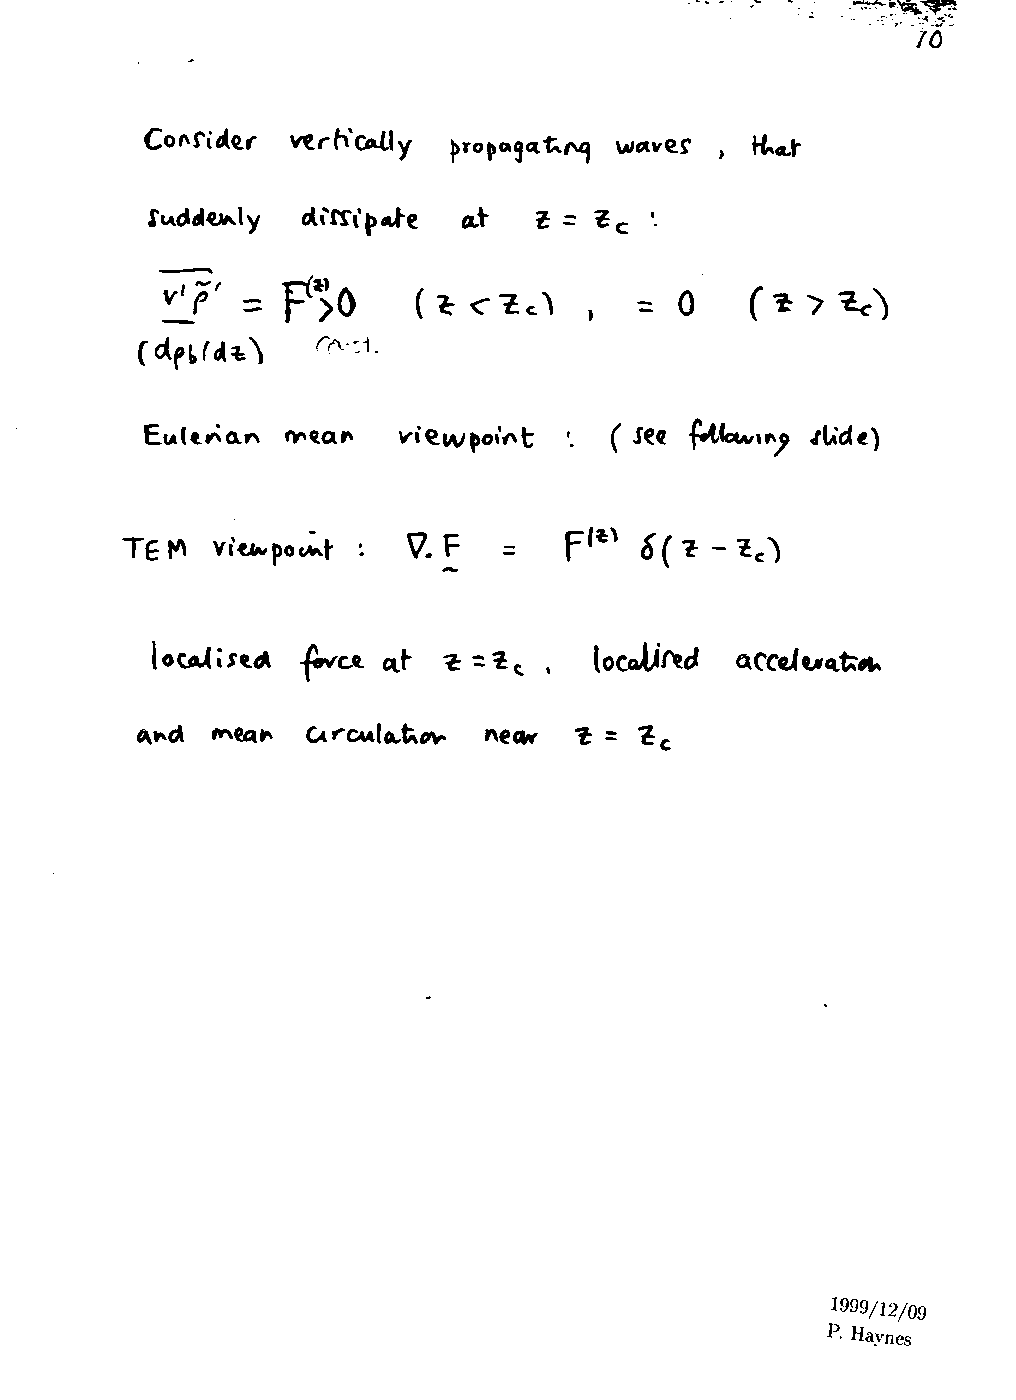 10
Consider vertically propagating waves, that
suddenly dissipate at z = z_c :
\overline{v'ρ̃'} = F^{(z)} > 0 (z < z_c), = 0 (z > z_c)
(dρ_b/dz) const.
Eulerian mean viewpoint : (see following slide)
TEM viewpoint : ∇. F̰ = F^{(z)} δ(z - z_c)
localised force at z = z_c, localised acceleration
and mean circulation near z = z_c
1999/12/09
P. Haynes